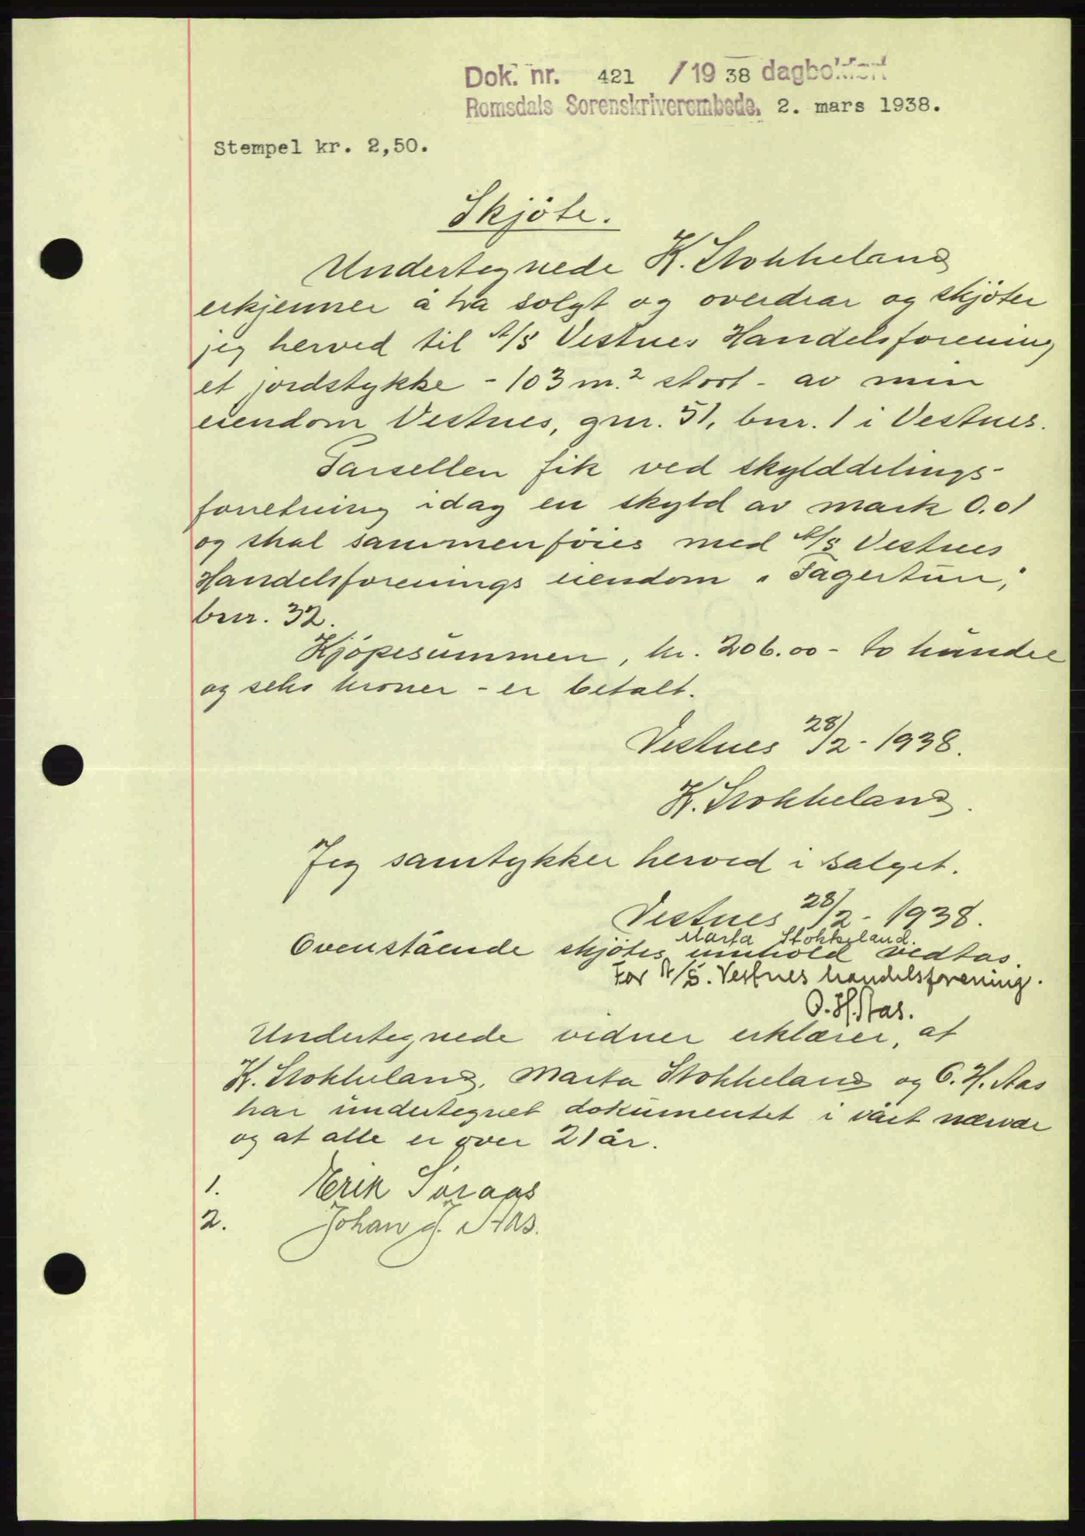 Dok. nr. 421 / 19 38 dagbokført
Romsdals Sorenskriverembede, 2. mars 1938.
Stempel kr. 2,50.
Skjöte.
Undertegnede K. Stokkeland
erkjenner å ha solgt og overdrar og skjöter
jeg herved til A/S Vestnes Handelsforening
et jordstykke - 103 m.² stort - av min
eiendom Vestnes, gnr. 51, bnr. 1 i Vestnes.
Parsellen fik ved skylddelings-
forretning idag en skyld av mark 0.01
og skal sammenföies med A/S Vestnes
Handelsforenings eiendom "Fagertun,"
bnr. 32.
Kjöpesummen, kr. 206.00 - to hundre
og seks kroner - er betalt.
Vestnes 28/2 - 1938.
K. Stokkeland.
Jeg samtykker herved i salget.
Vestnes 28/2 - 1938.
Marta Stokkeland.
Ovenstående skjötes innhold vedtas.
For A/S. Vestnes handelsforening.
O. H. Aas.
Undertegnede vidner erklærer, at
K. Stokkeland, Marta Stokkeland og O. H. Aas
har undertegnet dokumentet i vårt nærvær
og at alle er over 21 år.
1. Erik Söraas
2. Johan J. Aas.